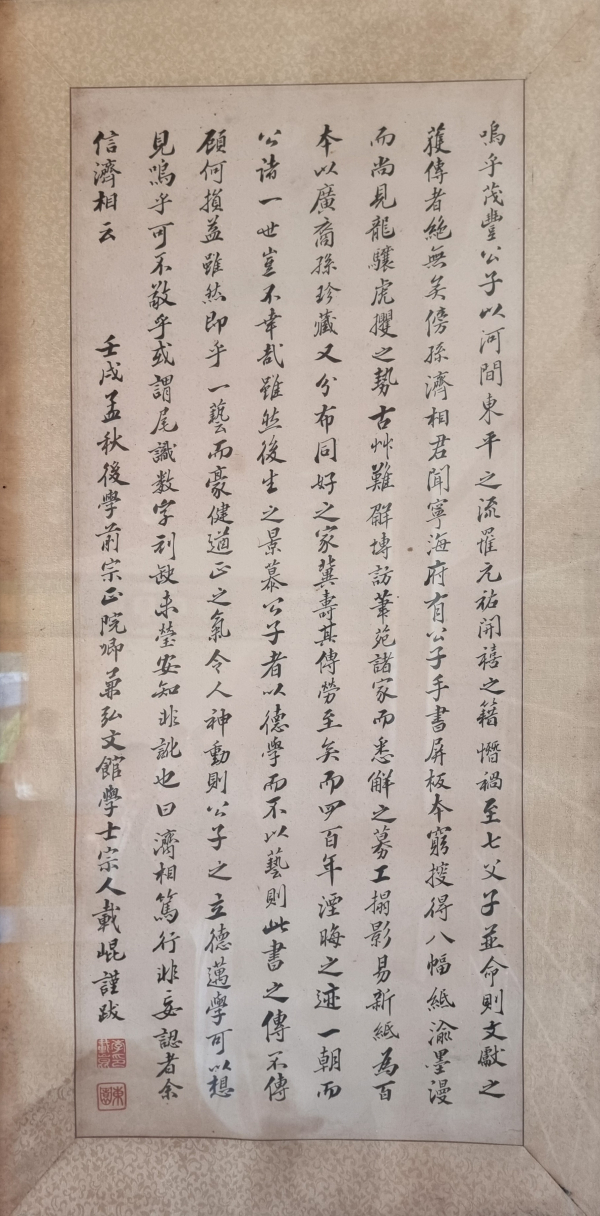 嗚乎茂豐公子以河間東平之流罹元祐開禧之籍憯禍至七父子並命則文獻之
獲傳者絶無矣傍孫濟相君聞寧海府有公子手書屏板本窮搜得八幅紙渝墨漫
而尚見龍驤虎攫之勢古艸難辭博訪華苑諸家而悉解之募工搨影易新紙為百
本以廣裔孫珍藏又分布同好之家冀壽其傳勞至矣而四百年湮晦之迹一朝而
公諸一世豈不幸哉雖然後生之景慕公子者以德學而不以藝則此書之傳不傳
顧何損益雖然即乎一藝而豪健遒正之氣令人神動則公子之立德邁學可以想
見嗚乎可不敬乎或謂尾識數字刓缺未瑩安知非訛也曰濟相篤行非妄認者余
信濟相云
壬戌孟秋後學前宗正院卿兼弘文館學士宗人載崐謹跋